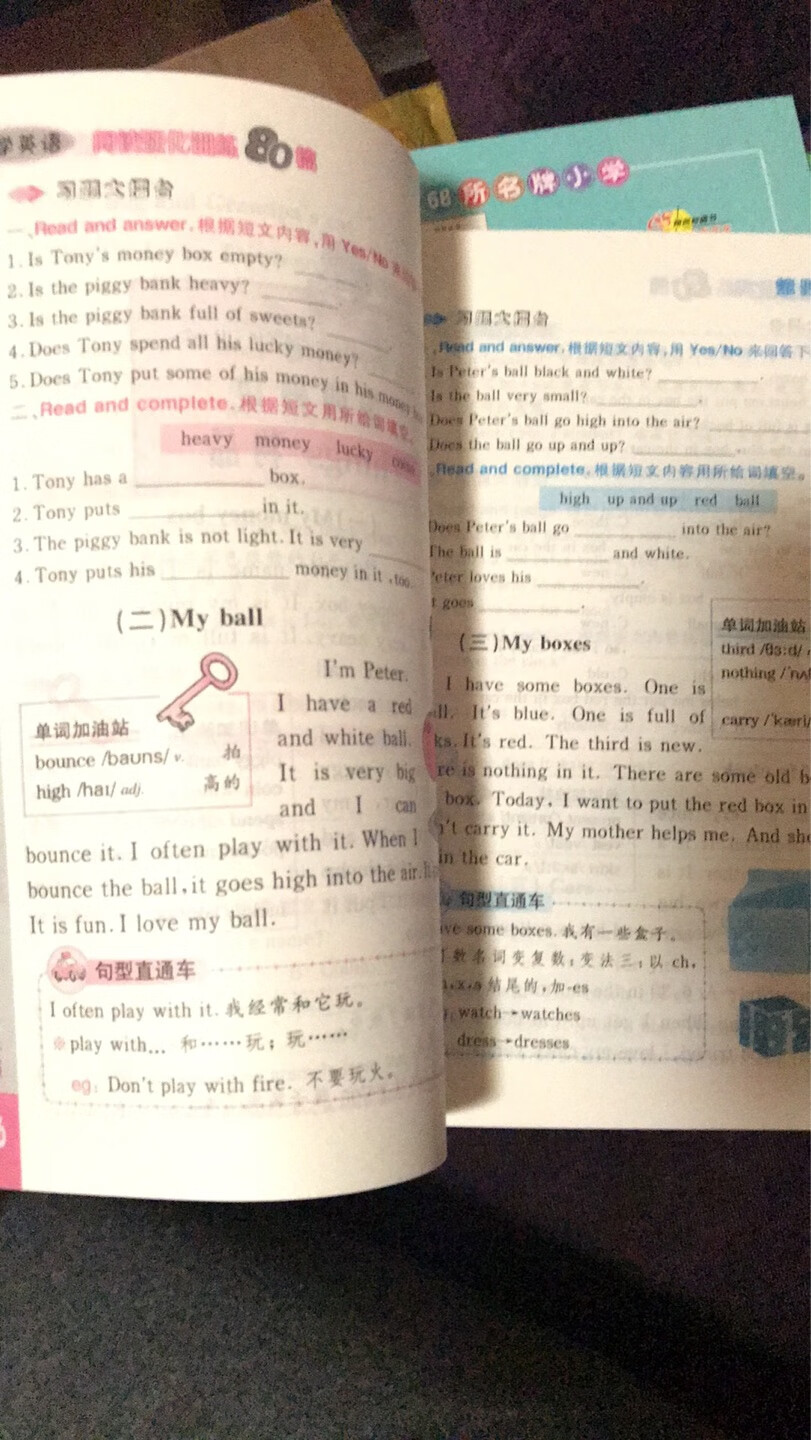 学英语
80篇
一、Read and answer.根据短文内容,用 Yes/No
1. Is Tony's money box empty?
2. Is the piggy bank heavy?
3. Is the piggy bank full of sweets?
4. Does Tony spend all his lucky money?
5. Does Tony put some of his money in his money
二、Read and complete.根据短文用所给词填空。
heavy money lucky
1. Tony has a ____________ box.
2. Tony puts ____________ in it.
3. The piggy bank is not light. It is very ______
4. Tony puts his ____________ money in it , too.
(二)My ball
I'm Peter.
I have a red
and white ball.
It is very big
and I can
bounce it. I often play with it. When I
bounce the ball, it goes high into the air.
It is fun. I love my ball.
单词加油站
bounce /baʊns/ v. 拍
high /haɪ/ adj. 高的
句型直通车
I often play with it. 我经常和它玩。
※play with... 和……玩;玩……
eg: Don't play with fire. 不要玩火。
68所名牌小学
Read and answer.根据短文内容,用 Yes/No 来回答下
Is Peter's ball black and white? ____________.
Is the ball very small? ____________.
Does Peter's ball go high into the air? ____________
Does the ball go up and up? ____________.
Read and complete.根据短文内容用所给词填空。
high up and up red ball
Does Peter's ball go ____________ into the air?
The ball is ____________ and white.
Peter loves his ____________.
t goes ____________.
(三)My boxes
I have some boxes. One is
ll. It's blue. One is full of
ks. It's red. The third is new.
re is nothing in it. There are some old b
box. Today, I want to put the red box in
't carry it. My mother helps me. And she
in the car.
单词加油站
third /θɜːd/
nothing /ˈnʌ
carry /ˈkæri/
句型直通车
ve some boxes. 我有一些盒子。
数名词变复数:变法三:以 ch,
x, s 结尾的,加-es
watch→watches
dress→dresses